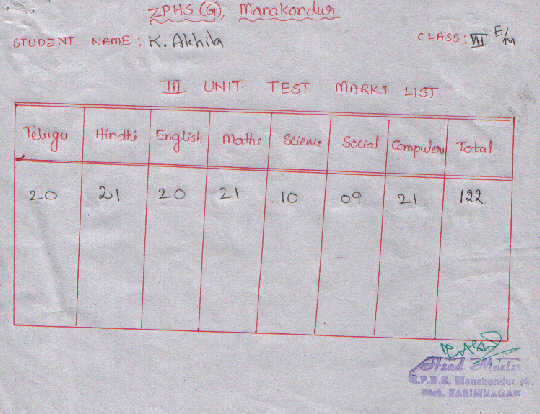 ZPHS (G), Manakondur
STUDENT NAME : K. Akhila CLASS: VII E/M
III UNIT TEST MARKS LIST
Telugu Hindhi English Maths Science Social Computers Total
20 21 20 21 10 09 21 122
Head Master
Z.P.H.S. Manakondur (G)
Dist. KARIMNAGAR